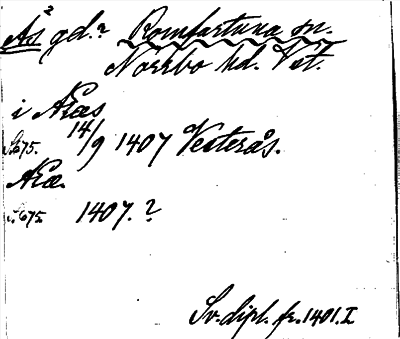 Ås² gd.? Romfartuna sn.
Norrbo hd. Vst.
i Aas
S. 675. 14/9 1407 Vesterås.
Aa.
S. 675. 1407.?
Sv. dipl. fr. 1401. I